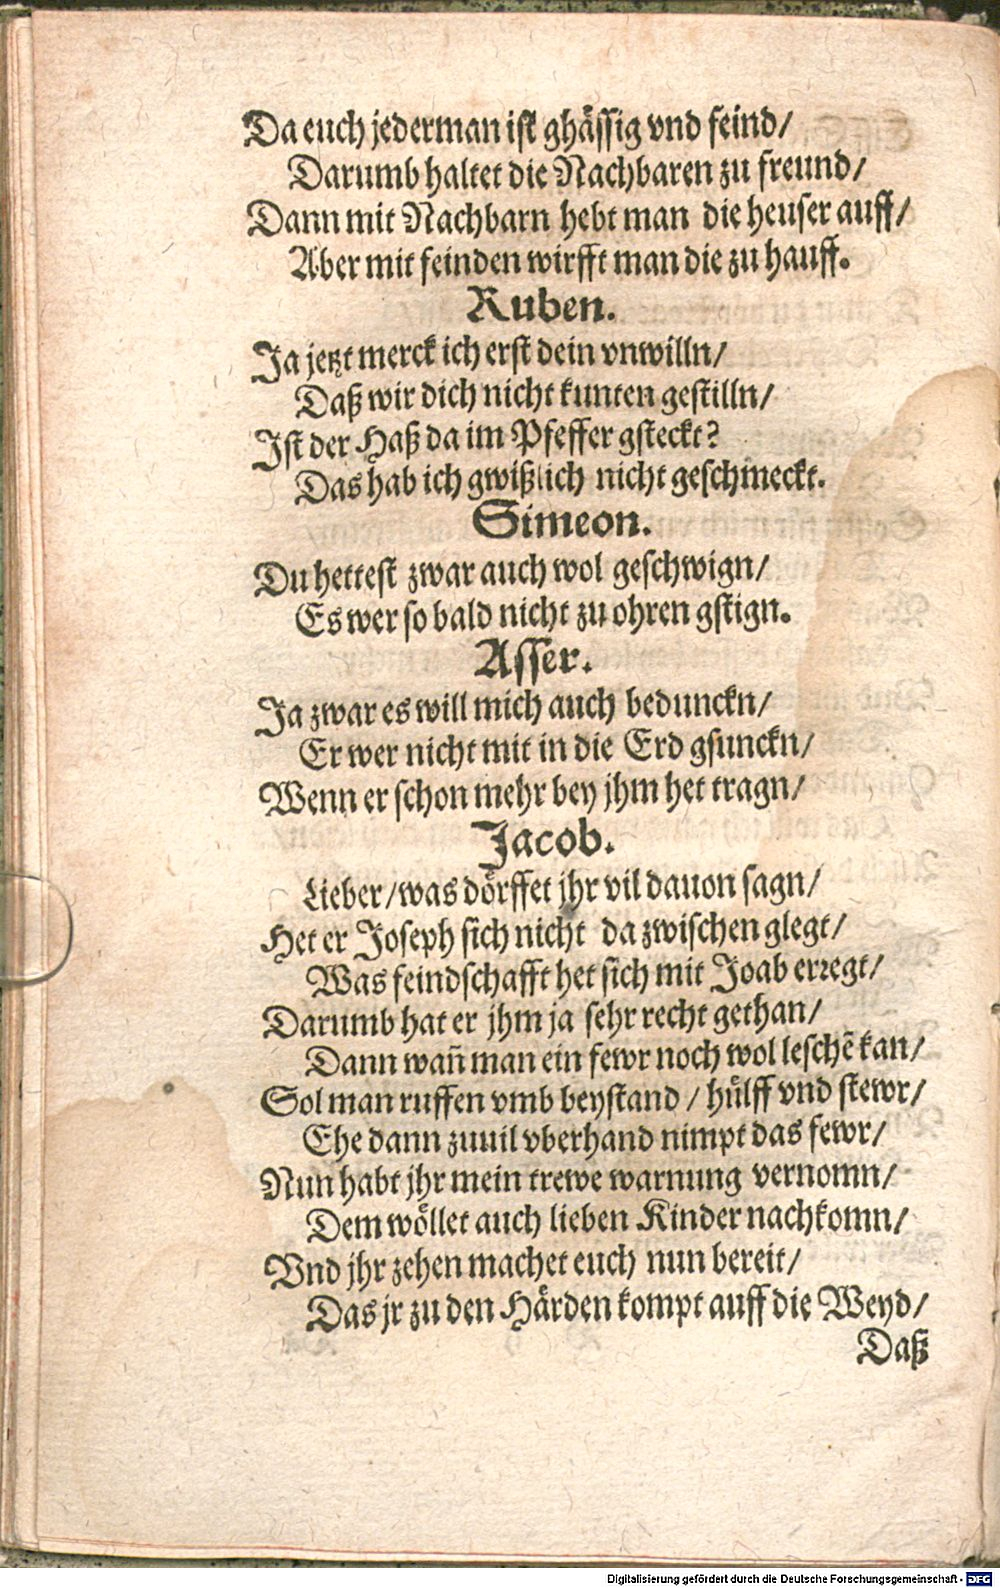 Da euch jederman ist ghässig vnd feind/
Darumb haltet die Nachbaren zu freund/
Dann mit Nachbarn hebt man die heuser auff/
Aber mit feinden wirfft man die zu hauff.
Ruben.
Ja jetzt merck ich erst dein vnwilln/
Daß wir dich nicht kunten gestilln/
Ist der Haß da im Pfeffer gsteckt?
Das hab ich gwißlich nicht geschmeckt.
Simeon.
Du hettest zwar auch wol geschwign/
Es wer so bald nicht zu ohren gstign.
Asser.
Ja zwar es will mich auch beduncken/
Er wer nicht mit in die Erd gsunckn/
Wenn er schon mehr bey jhm het tragn/
Jacob.
Lieber/was dörffet jhr vil dauon sagn/
Het er Joseph sich nicht da zwischen glegt/
Was feindschafft het sich mit Joab erregt/
Darumb hat er jhm ja sehr recht gethan/
Dann wañ man ein fewr noch wol leschē kan/
Sol man ruffen vmb beystand / hülff vnd stewr/
Ehe dann zuuil vberhand nimpt das fewr/
Nun habt jhr mein trewe warnung vernomn/
Dem wöllet auch lieben Kinder nachkomn/
Vnd jhr zehen machet euch nun bereit/
Das jr zu den Härden kompt auff die Weyd/
Daß
Digitalisierung gefördert durch die Deutsche Forschungsgemeinschaft - DFG